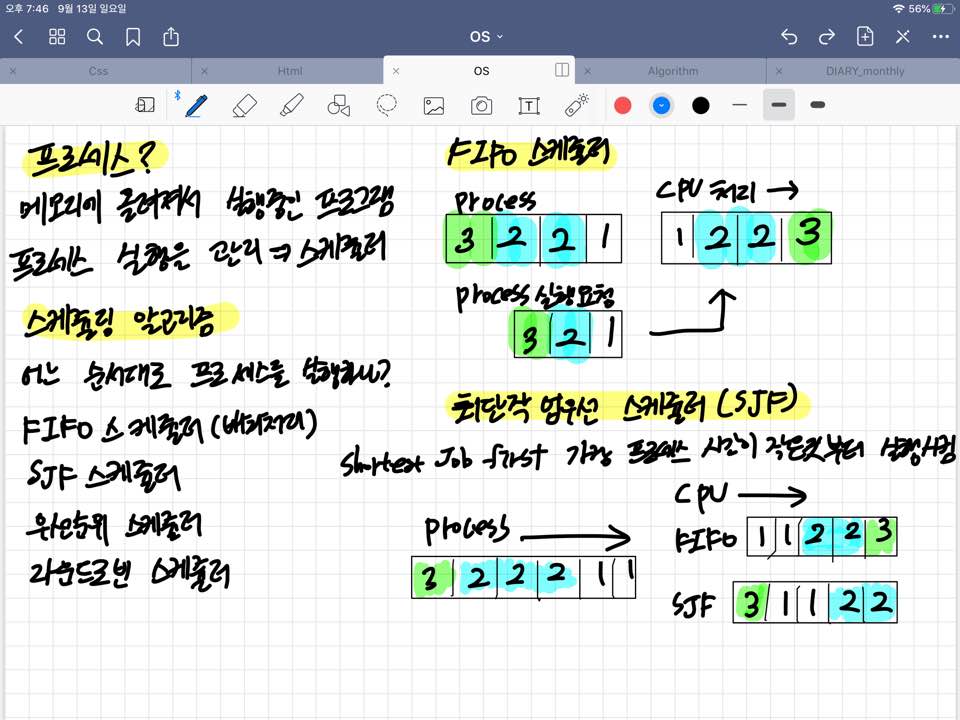 오후 7:46 9월 13일 일요일
56%
OS
Css
Html
OS
Algorithm
DIARY_monthly
프로세스?
메모리에 올려져서 실행중인 프로그램
프로세스 실행을 관리 ⇒ 스케줄러
스케줄링 알고리즘
어느 순서대로 프로세스를 실행하나?
FIFO 스케줄러(배치처리)
SJF 스케줄러
우선순위 스케줄러
라운드로빈 스케줄러
FIFO 스케줄러
process
3 2 2 1
CPU 처리 →
1 2 2 3
process 실행요청
3 2 1
최단작업우선 스케줄러 (SJF)
Shortest Job first 가장 프로세스 시간이 작은것부터 실행시킴
process →
3 2 2 2 1 1
CPU →
FIFO 1 1 2 2 3
SJF 3 1 1 2 2